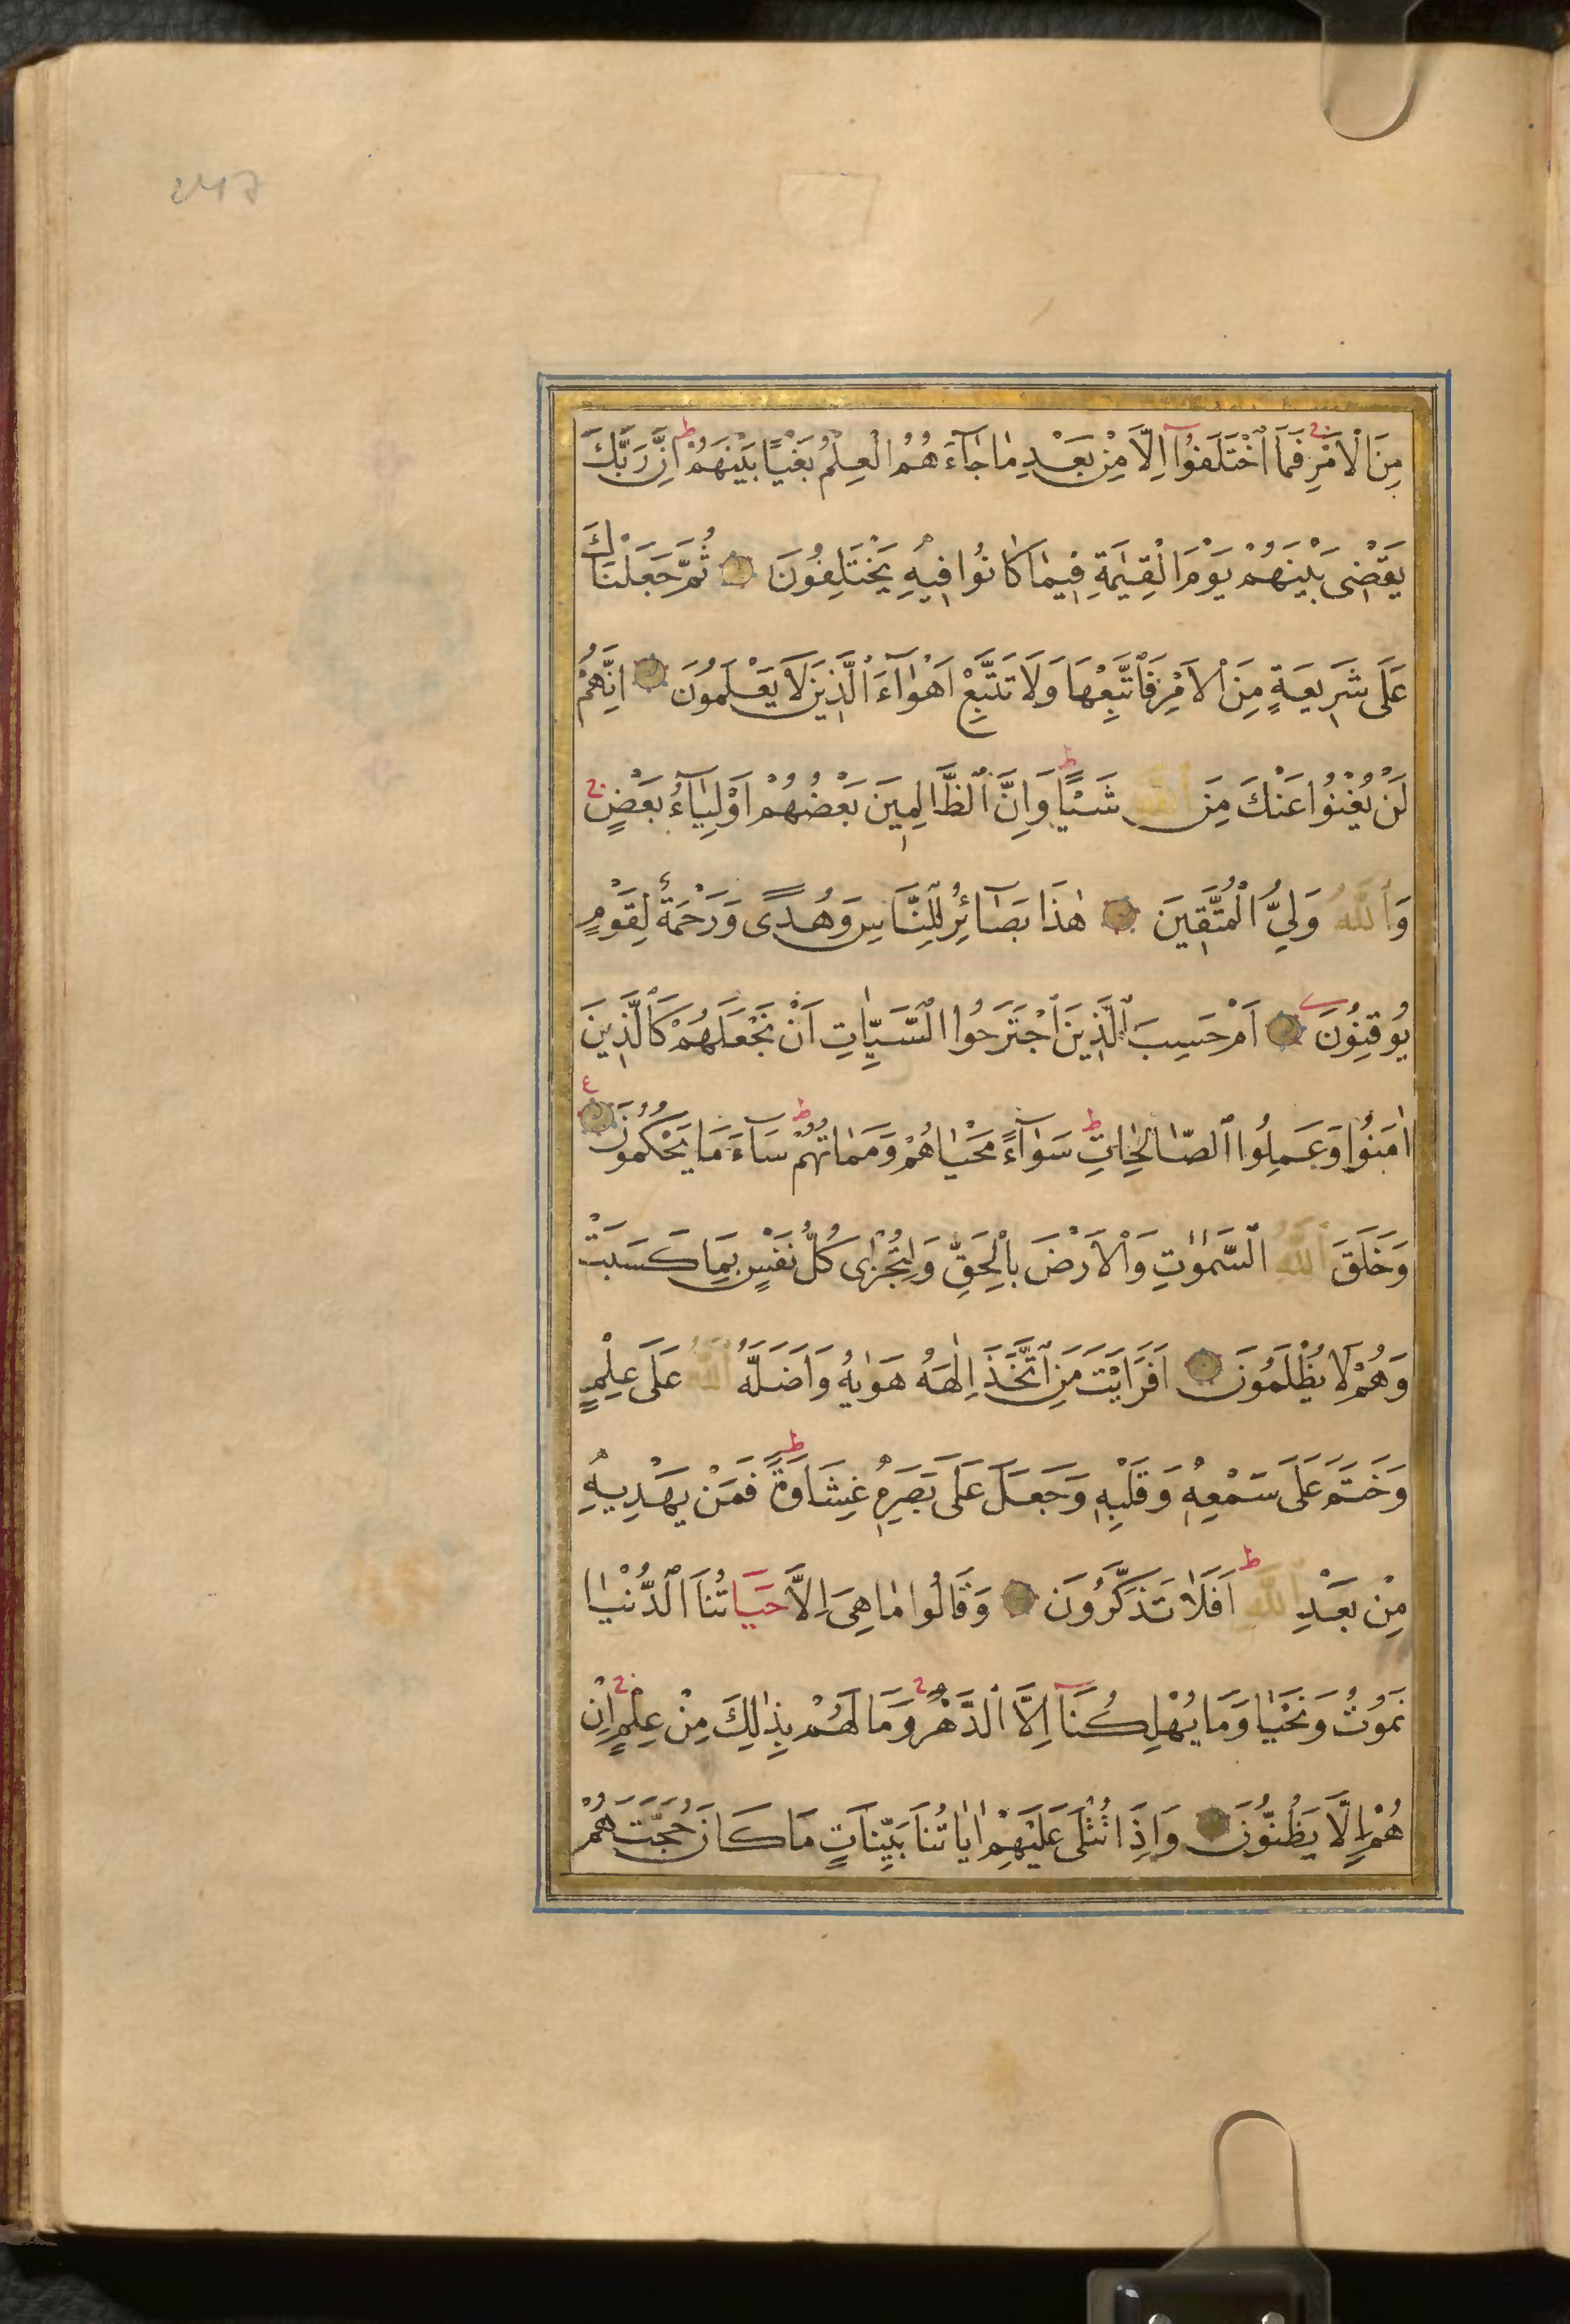 247
مِنَ الْاَمْرِ فَمَا اخْتَلَفُوٓا اِلَّا مِنْ بَعْدِ مَا جَآءَهُمُ الْعِلْمُ بَغْيًا بَيْنَهُمْ اِنَّ رَبَّكَ
يَقْضٖى بَيْنَهُمْ يَوْمَ الْقِيٰمَةِ فٖيمَا كَانُوا فٖيهِ يَخْتَلِفُونَ ثُمَّ جَعَلْنَاكَ
عَلٰى شَرٖيعَةٍ مِنَ الْاَمْرِ فَاتَّبِعْهَا وَلَا تَتَّبِعْ اَهْوَآءَ الَّذٖينَ لَا يَعْلَمُونَ اِنَّهُمْ
لَنْ يُغْنُوا عَنْكَ مِنَ اللّٰهِ شَيْـًٔا وَاِنَّ الظَّالِمٖينَ بَعْضُهُمْ اَوْلِيَآءُ بَعْضٍ
وَاللّٰهُ وَلِيُّ الْمُتَّقٖينَ هٰذَا بَصَآئِرُ لِلنَّاسِ وَهُدًى وَرَحْمَةٌ لِقَوْمٍ
يُوقِنُونَ اَمْ حَسِبَ الَّذٖينَ اجْتَرَحُوا السَّيِّاٰتِ اَنْ نَجْعَلَهُمْ كَالَّذٖينَ
اٰمَنُوا وَعَمِلُوا الصَّالِحَاتِ سَوَآءً مَحْيَاهُمْ وَمَمَاتُهُمْ سَآءَ مَا يَحْكُمُونَ
وَخَلَقَ اللّٰهُ السَّمٰوٰتِ وَالْاَرْضَ بِالْحَقِّ وَلِتُجْزٰى كُلُّ نَفْسٍ بِمَا كَسَبَتْ
وَهُمْ لَا يُظْلَمُونَ اَفَرَاَيْتَ مَنِ اتَّخَذَ اِلٰهَهُ هَوٰيهُ وَاَضَلَّهُ اللّٰهُ عَلٰى عِلْمٍ
وَخَتَمَ عَلٰى سَمْعِهٖ وَقَلْبِهٖ وَجَعَلَ عَلٰى بَصَرِهٖ غِشَاوَةً فَمَنْ يَهْدٖيهِ
مِنْ بَعْدِ اللّٰهِ اَفَلَا تَذَكَّرُونَ وَقَالُوا مَا هِيَ اِلَّا حَيَاتُنَا الدُّنْيَا
نَمُوتُ وَنَحْيَا وَمَا يُهْلِكُنَآ اِلَّا الدَّهْرُ وَمَا لَهُمْ بِذٰلِكَ مِنْ عِلْمٍ اِنْ
هُمْ اِلَّا يَظُنُّونَ وَاِذَا تُتْلٰى عَلَيْهِمْ اٰيَاتُنَا بَيِّنَاتٍ مَا كَانَ حُجَّتَهُمْ